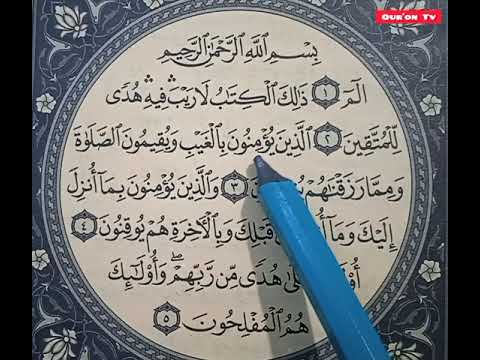 Qur'on Tv
بِسْمِ ٱللَّهِ ٱلرَّحْمَٰنِ ٱلرَّحِيمِ
الٓمٓ ١ ذَٰلِكَ ٱلْكِتَٰبُ لَا رَيْبَ ۛ فِيهِ ۛ هُدًى
لِّلْمُتَّقِينَ ٢ ٱلَّذِينَ يُؤْمِنُونَ بِٱلْغَيْبِ وَيُقِيمُونَ ٱلصَّلَوٰةَ
وَمِمَّا رَزَقْنَٰهُمْ ٣ وَٱلَّذِينَ يُؤْمِنُونَ بِمَآ أُنزِلَ
إِلَيْكَ وَمَآ قَبْلِكَ وَبِٱلْءَاخِرَةِ هُمْ يُوقِنُونَ ٤
هُدًى مِّن رَّبِّهِمْ ۖ وَأُو۟لَٰٓئِكَ
هُمُ ٱلْمُفْلِحُونَ ٥